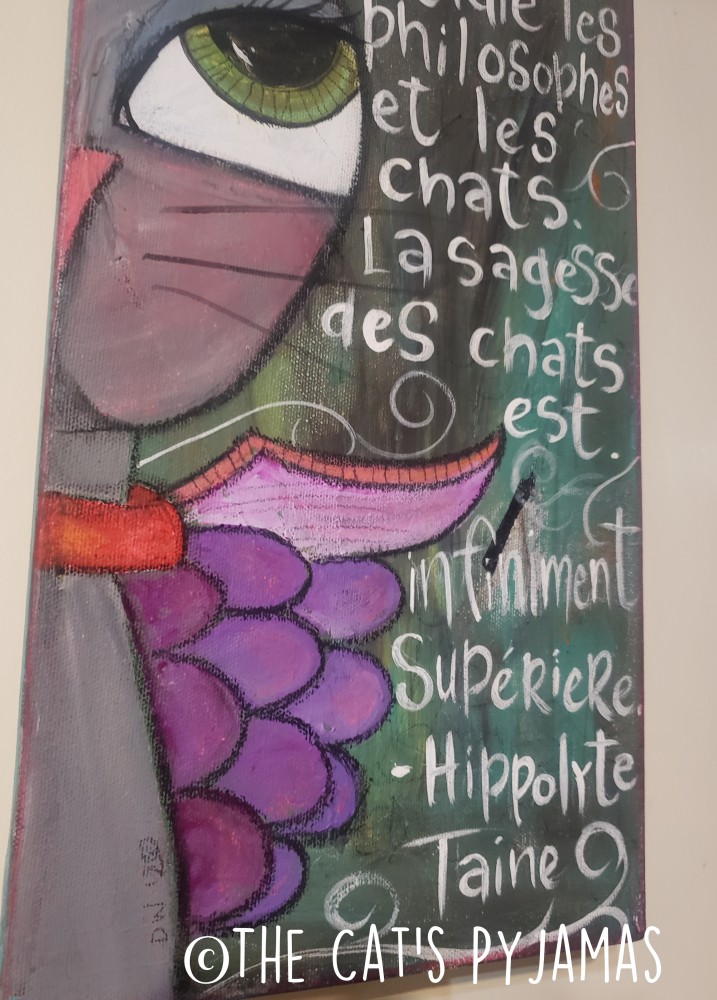 les
philosophes
et les
chats.
La sagesse
des chats
est.
infiniment
Supériere.
- Hippolyte
Taine
©THE CAT'S PYJAMAS